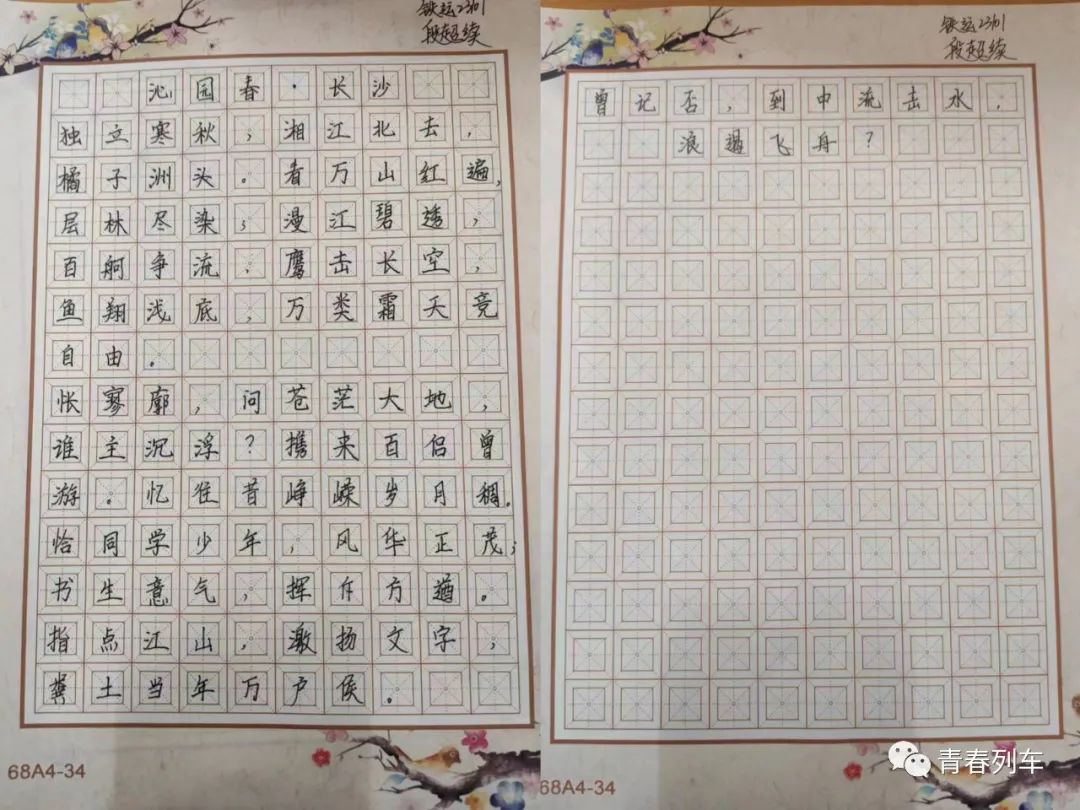 铁运2301
段超续
沁园春·长沙
独立寒秋，湘江北去，
橘子洲头。看万山红遍，
层林尽染；漫江碧透，
百舸争流，鹰击长空，
鱼翔浅底，万类霜天竞
自由。
怅寥廓，问苍茫大地，
谁主沉浮？携来百侣曾
游。忆往昔峥嵘岁月稠。
恰同学少年，风华正茂；
书生意气，挥斥方遒。
指点江山，激扬文字，
粪土当年万户侯。
68A4-34
铁运2301
段超续
曾记否，到中流击水，
浪遏飞舟？
68A4-34
青春列车